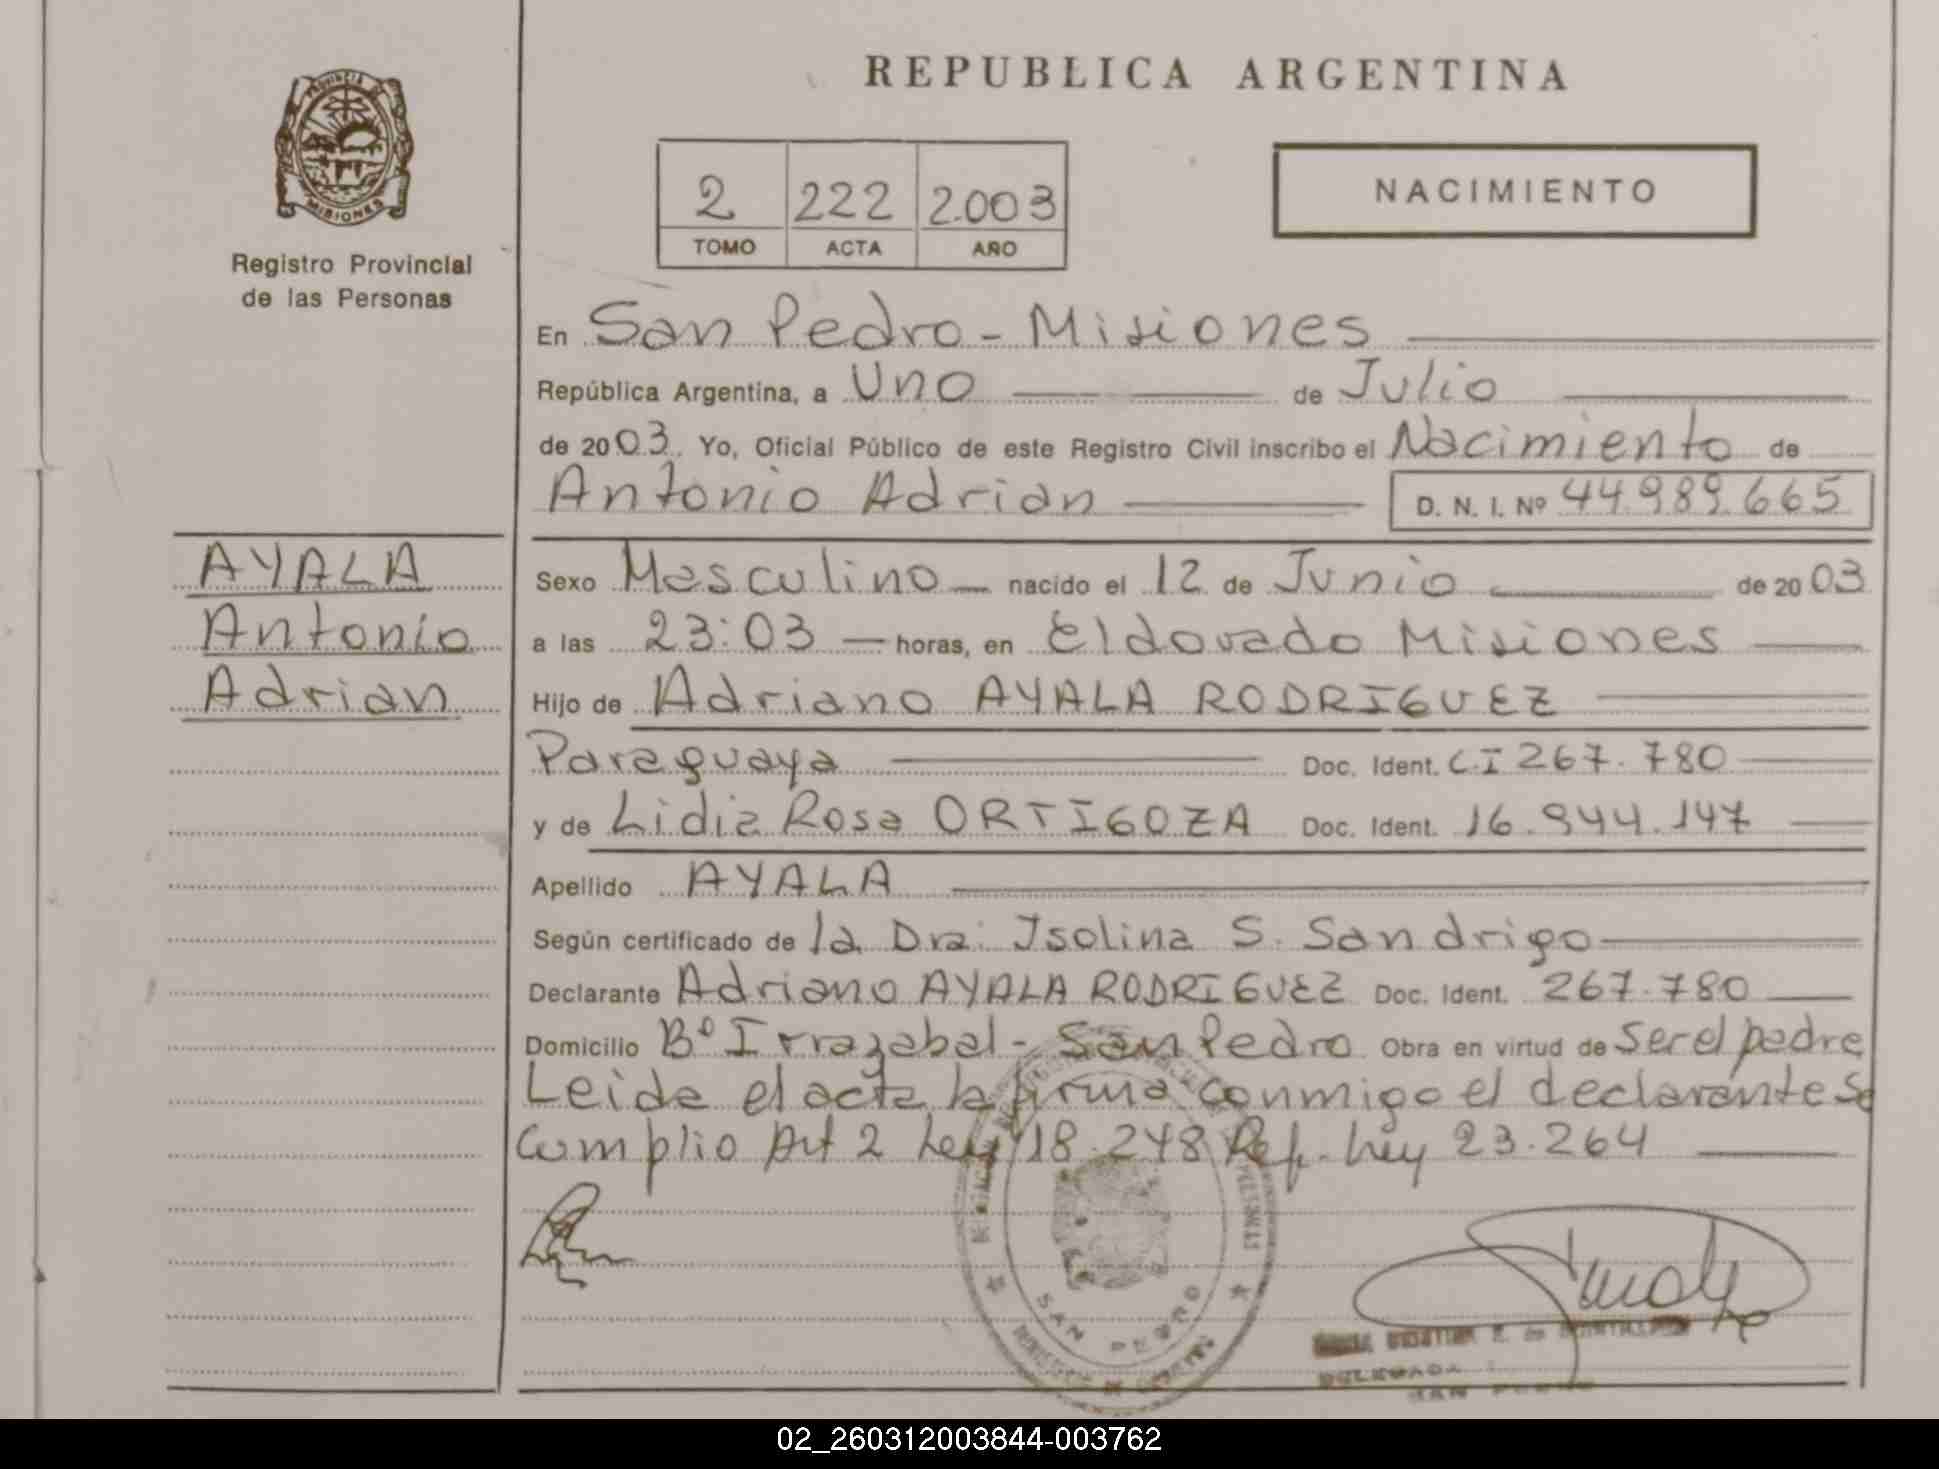 REPUBLICA ARGENTINA
PROVINCIA DE
MISIONES
Registro Provincial
de las Personas
2 222 2.003
TOMO ACTA AÑO
NACIMIENTO
En San Pedro - Misiones
República Argentina, a Uno de Julio
de 2003. Yo, Oficial Público de este Registro Civil inscribo el Nacimiento de
Antonio Adrian D. N. I. Nº 44.989.665
AYALA
Antonio
Adrian
Sexo Masculino nacido el 12 de Junio de 2003
a las 23:03 horas, en Eldorado Misiones
Hijo de Adriano AYALA RODRIGUEZ
Paraguaya Doc. Ident. C.I 267.780
y de Lidia Rosa ORTIGOZA Doc. Ident. 16.944.147
Apellido AYALA
Según certificado de la Dra: Isolina S. Sandrigo
Declarante Adriano AYALA RODRIGUEZ Doc. Ident. 267.780
Domicilio Bº Irrazabal - San Pedro Obra en virtud de Ser el padre
Leida el acta la firma conmigo el declarante Se
Cumplio Art 2 Ley 18.248 Ref. Ley 23.264
SAN PEDRO
DELEGADA
SAN PEDRO
02_260312003844-003762